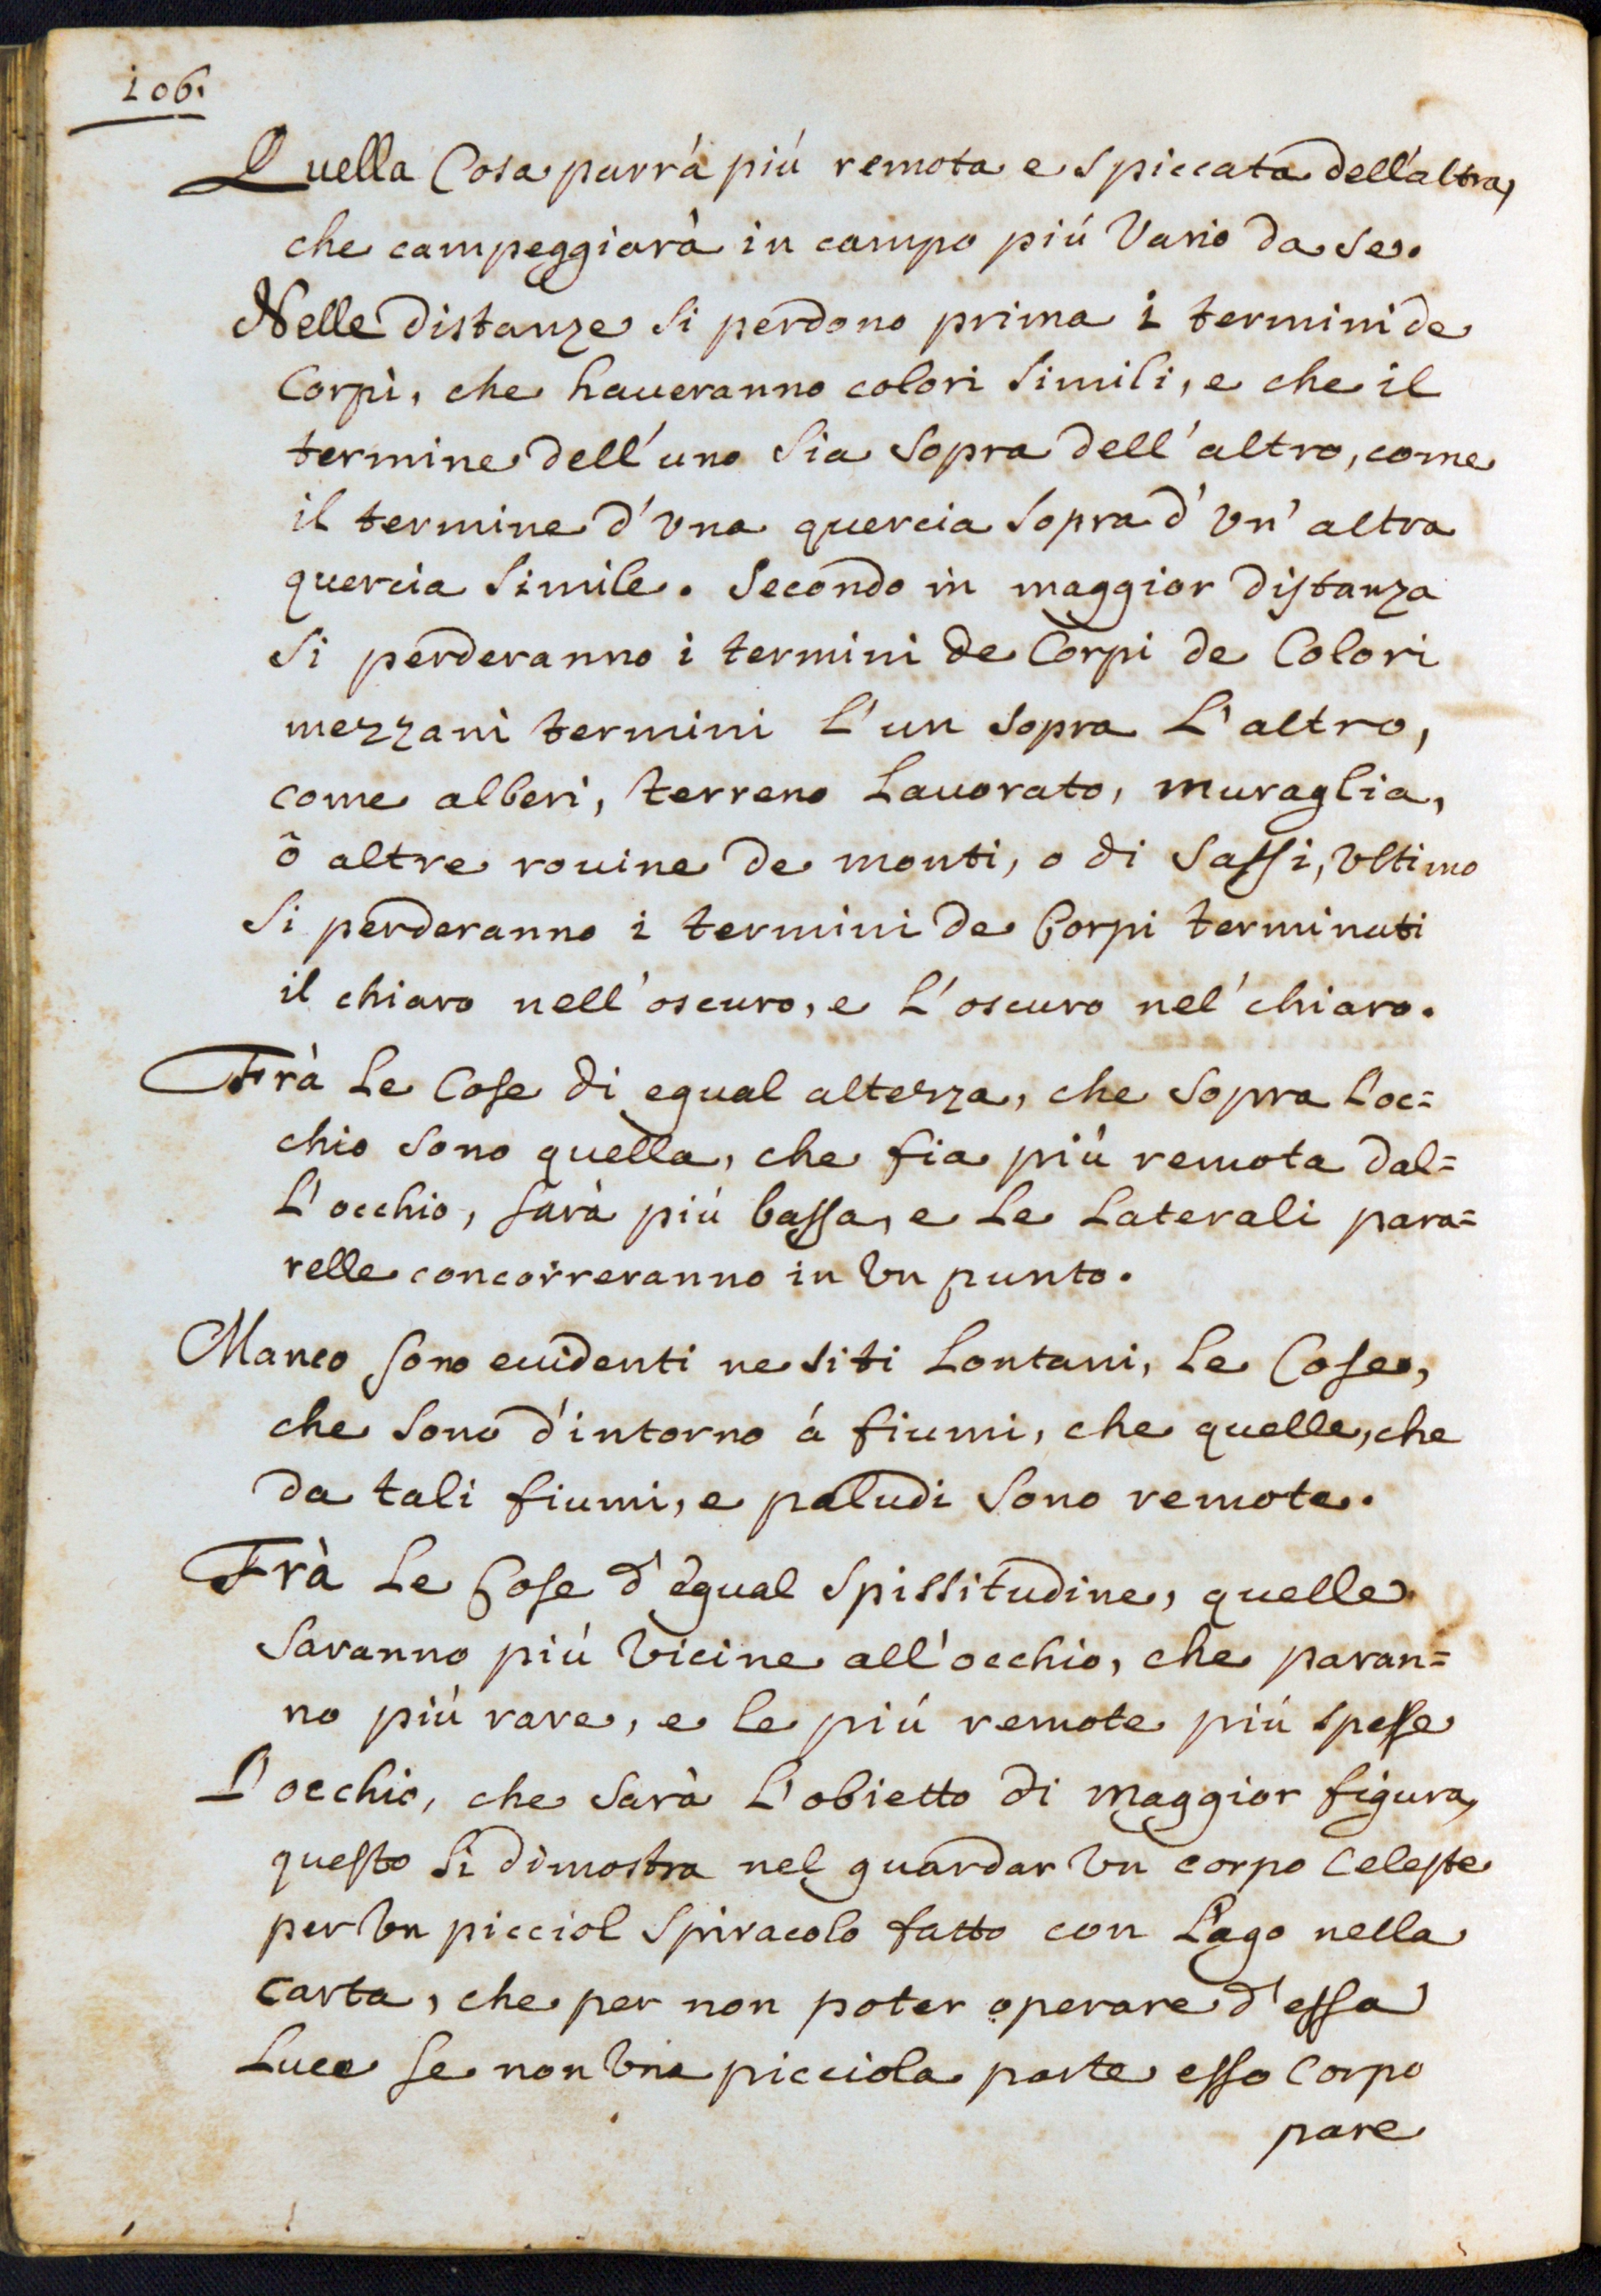 106.
Quella Cosa parrà più remota e spiccata dell'altra,
che campeggiarà in campo più Vario da se.
Nelle distanze si perdono prima i termini de
Corpi, che haueranno colori simili, e che il
termine dell'uno sia sopra dell'altro, come
il termine d'vna quercia sopra d'vn'altra
quercia simile. Secondo in maggior distanza
si perderanno i termini de Corpi de Colori
mezzani termini l'un sopra l'altro,
come alberi, terreno lauorato, muraglia,
ò altre rouine de monti, o di sassi, Vltimo
si perderanno i termini de Corpi terminati
il chiaro nell'oscuro, e l'oscuro nel'chiaro.
Frà le Cose di egual altezza, che sopra l'oc=
chio sono quella, che fia più remota dal=
l'occhio, sarà più bassa, e le laterali para=
relle concorreranno in vn punto.
Manco sono euidenti ne siti lontani, le Cose,
che sono d'intorno á fiumi, che quelle, che
da tali fiumi, e paludi sono remote.
Frà le Cose d'egual spissitudine, quelle
saranno più vicine all'occhio, che paran=
no più rare, e le più remote più spesse
L'occhio, che sarà l'obietto di maggior figura,
questo si dimostra nel guardar vn corpo Celeste
per vn picciol spiracolo fatto con l'ago nella
carta, che per non poter operare d'essa
luce se non vna picciola parte esso Corpo
pare